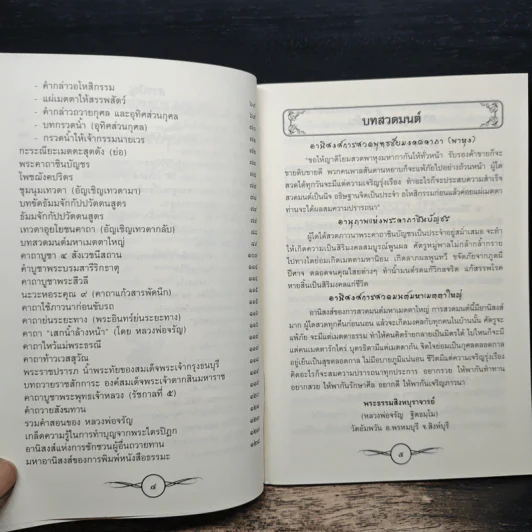 - คำกล่าวอโหสิกรรม
- แผ่เมตตาให้สรรพสัตว์
- คำกล่าวถวายกุศล และอุทิศส่วนกุศล
- บทกรวดน้ำ (อุทิศส่วนกุศล)
- กรวดน้ำให้เจ้ากรรมนายเวร
กะระณียะเมตตะสุตตัง (ย่อ)
พระคาถาชินบัญชร
โพชฌังคปริตร
ชุมนุมเทวดา (อัญเชิญเทวดามา)
บทขัดธัมมจักกัปปวัตตนสูตร
ธัมมจักกัปปวัตตนสูตร
เทวตาอุยโยชนคาถา (อัญเชิญเทวดากลับ)
บทสวดมนต์มหาเมตตาใหญ่
คาถาบูชา ๔ สังเวชนีสถาน
คำบูชาพระบรมสารีริกธาตุ
คาถาบูชา พระสีวลี
นะวะหอระคุณ ๙ (คาถาแก้วสารพัดนึก)
คาถาใช้ภาวนาก่อนขับรถ
คาถาย่นระยะทาง (พระอินทร์ย่นระยะทาง)
คาถา "เสกน้ำล้างหน้า" (โดย หลวงพ่อจรัญ)
คาถาไหว้แม่พระธรณี
คาถาท้าวเวสสุวัณ
พระราชปรารภ น้ำพระทัยของสมเด็จพระเจ้ากรุงธนบุรี
บทถวายราชสักการะ องค์สมเด็จพระเจ้าตากสินมหาราช
คาถาบูชาพระพุทธเจ้าหลวง (รัชกาลที่ ๕)
คำถวายสังฆทาน
รวมคำสอนของ หลวงพ่อจรัญ
เกล็ดความรู้ในการทำบุญจากพระไตรปิฎก
อานิสงส์แห่งการชักชวนผู้อื่นถวายทาน
มหาอานิสงส์ของการพิมพ์หนังสือธรรมะ
๔
บทสวดมนต์
อานิสงส์การสวดพุทธชัยมงคลคาถา (พาหุง)
"ขอให้ญาติโยมสวดพาหุงมหากากันให้ทั่วหน้า รับรองค้าขายก็จะ
ขายดิบขายดี พวกคนพาลสันดานหยาบก็จะแพ้ภัยไปอย่างถ้วนหน้า ผู้ใด
สวดได้ทุกวันจะมีแต่ความเจริญรุ่งเรือง ทำอะไรก็จะประสบความสำเร็จ
สวดมนต์เป็นนิจ อธิษฐานจิตเป็นประจำ อโหสิกรรมก่อนแล้วค่อยแผ่เมตตา
ท่านจะได้ผลสมความปรารถนา"
อานุภาพแห่งพระคาถาชินบัญชร
ผู้ใดได้สวดภาวนาพระคาถาชินบัญชรเป็นประจำอยู่สม่ำเสมอ จะทำ
ให้เกิดความเป็นสิริมงคลสมบูรณ์พูนผล ศัตรูหมู่พาลไม่กล้ากล้ำกราย
ไปทางใดย่อมเกิดเมตตามหานิยม เกิดลาภผลพูนทวี ขจัดภัยจากภูตผี
ปีศาจ ตลอดจนคุณไสยต่างๆ ทำน้ำมนต์รดแก้วิกลจริต แก้สรรพโรค
หายสิ้นเป็นสิริมงคลแก่ชีวิต
อานิสงส์การสวดมนต์มหาเมตตาใหญ่
อานิสงส์ของการสวดมนต์มหาเมตตาใหญ่ การสวดมนต์นี้มีอานิสงส์
มาก ผู้ใดสวดทุกคืนก่อนนอน แล้วจะเกิดมงคลกับทุกคนในบ้านนั้น ศัตรูจะ
แพ้ภัย จะมีแต่เมตตาธรรม ทำให้คนคิดร้ายกลายเป็นมิตรได้ ไปไหนก็จะมี
แต่คนเมตตารักใคร่ บุตรธิดามีแต่เมตตากัน จิตใจอ่อนเป็นกุศลตลอดกาล
อยู่เย็นเป็นสุขตลอดกาล ไม่มีอบายภูมิแน่นอน ชีวิตมีแต่ความเจริญรุ่งเรือง
คิดอะไรก็จะสมความปรารถนาทุกประการ อยากรวย ให้พากันทำทาน
อยากสวย ให้พากันรักษาศีล อยากดี ให้พากันเจริญภาวนา
พระธรรมสิงหบุราจารย์
(หลวงพ่อจรัญ ฐิตธมฺโม)
วัดอัมพวัน อ.พรหมบุรี จ.สิงห์บุรี
๕